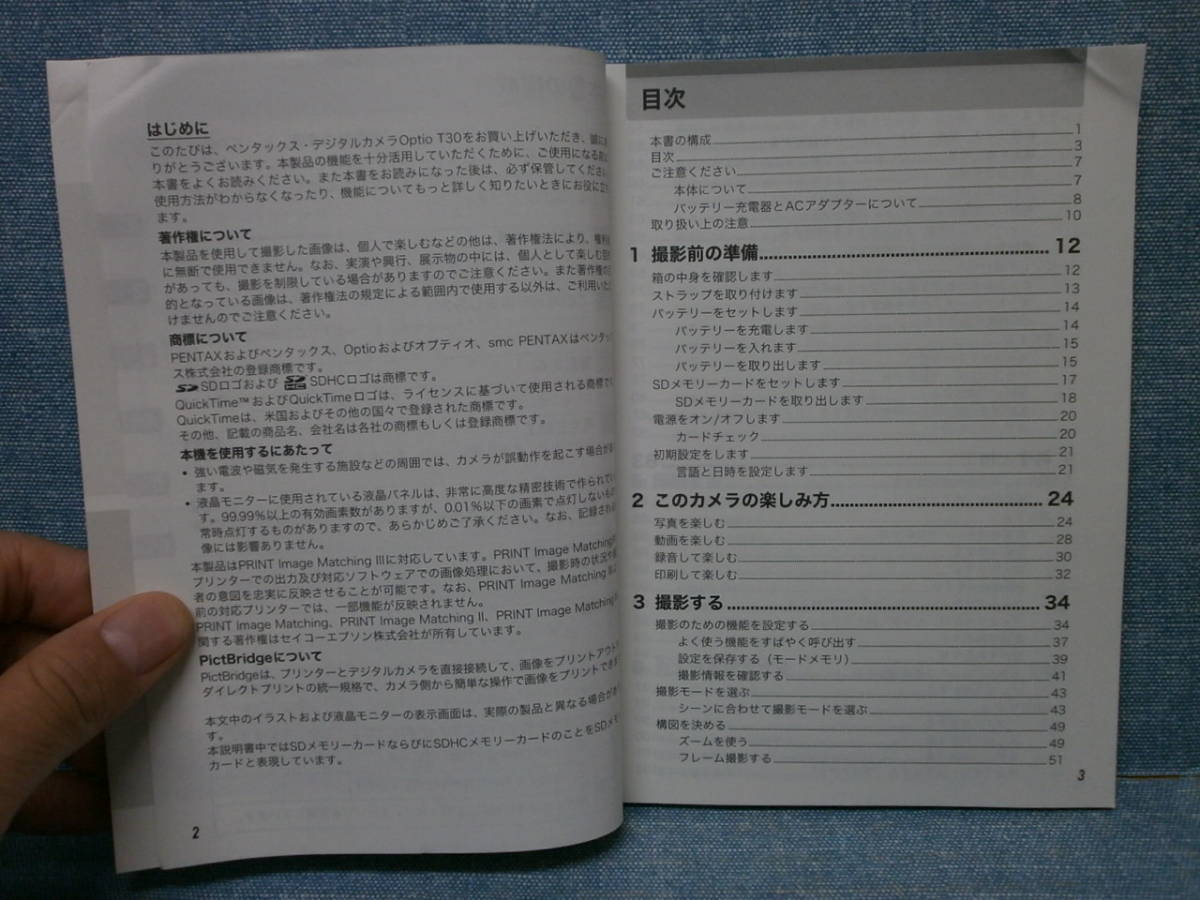 はじめに
このたびは、ペンタックス・デジタルカメラOptio T30をお買い上げいただき、誠に
りがとうございます。本製品の機能を十分活用していただくために、ご使用になる前に
本書をよくお読みください。また本書をお読みになった後は、必ず保管してください
使用方法がわからなくなったり、機能についてもっと詳しく知りたいときにお役に立
ます。
著作権について
本製品を使用して撮影した画像は、個人で楽しむなどの他は、著作権法により、権利
に無断で使用できません。なお、実演や興行、展示物の中には、個人として楽しむ目的
があっても、撮影を制限している場合がありますのでご注意ください。また著作権の目
的となっている画像は、著作権法の規定による範囲内で使用する以外は、ご利用いただ
けませんのでご注意ください。
商標について
PENTAXおよびペンタックス、Optioおよびオプティオ、smc PENTAXはペンタッ
ス株式会社の登録商標です。
SDロゴおよび SDHCロゴは商標です。
QuickTime™およびQuickTimeロゴは、ライセンスに基づいて使用される商標で
QuickTimeは、米国およびその他の国々で登録された商標です。
その他、記載の商品名、会社名は各社の商標もしくは登録商標です。
本機を使用するにあたって
• 強い電波や磁気を発生する施設などの周囲では、カメラが誤動作を起こす場合が
ます。
• 液晶モニターに使用されている液晶パネルは、非常に高度な精密技術で作られてい
す。99.99%以上の有効画素数がありますが、0.01%以下の画素で点灯しないもの
常時点灯するものがありますので、あらかじめご了承ください。なお、記録される
像には影響ありません。
本製品はPRINT Image Matching IIIに対応しています。PRINT Image Matching
プリンターでの出力及び対応ソフトウェアでの画像処理において、撮影時の状況や
者の意図を忠実に反映させることが可能です。なお、PRINT Image Matching
前の対応プリンターでは、一部機能が反映されません。
PRINT Image Matching、PRINT Image Matching II、PRINT Image Matching
関する著作権はセイコーエプソン株式会社が所有しています。
PictBridgeについて
PictBridgeは、プリンターとデジタルカメラを直接接続して、画像をプリントアウト
ダイレクトプリントの統一規格で、カメラ側から簡単な操作で画像をプリントでき
本文中のイラストおよび液晶モニターの表示画面は、実際の製品と異なる場合が
す。
本説明書中ではSDメモリーカードならびにSDHCメモリーカードのことをSDメモ
カードと表現しています。
2
目次
本書の構成 1
目次 3
ご注意ください 7
本体について 7
バッテリー充電器とACアダプターについて 8
取り扱い上の注意 10
1 撮影前の準備 12
箱の中身を確認します 12
ストラップを取り付けます 13
バッテリーをセットします 14
バッテリーを充電します 14
バッテリーを入れます 15
バッテリーを取り出します 15
SDメモリーカードをセットします 17
SDメモリーカードを取り出します 18
電源をオン/オフします 20
カードチェック 20
初期設定をします 21
言語と日時を設定します 21
2 このカメラの楽しみ方 24
写真を楽しむ 24
動画を楽しむ 28
録音して楽しむ 30
印刷して楽しむ 32
3 撮影する 34
撮影のための機能を設定する 34
よく使う機能をすばやく呼び出す 37
設定を保存する（モードメモリ） 39
撮影情報を確認する 41
撮影モードを選ぶ 43
シーンに合わせて撮影モードを選ぶ 43
構図を決める 49
ズームを使う 49
フレーム撮影する 51
3